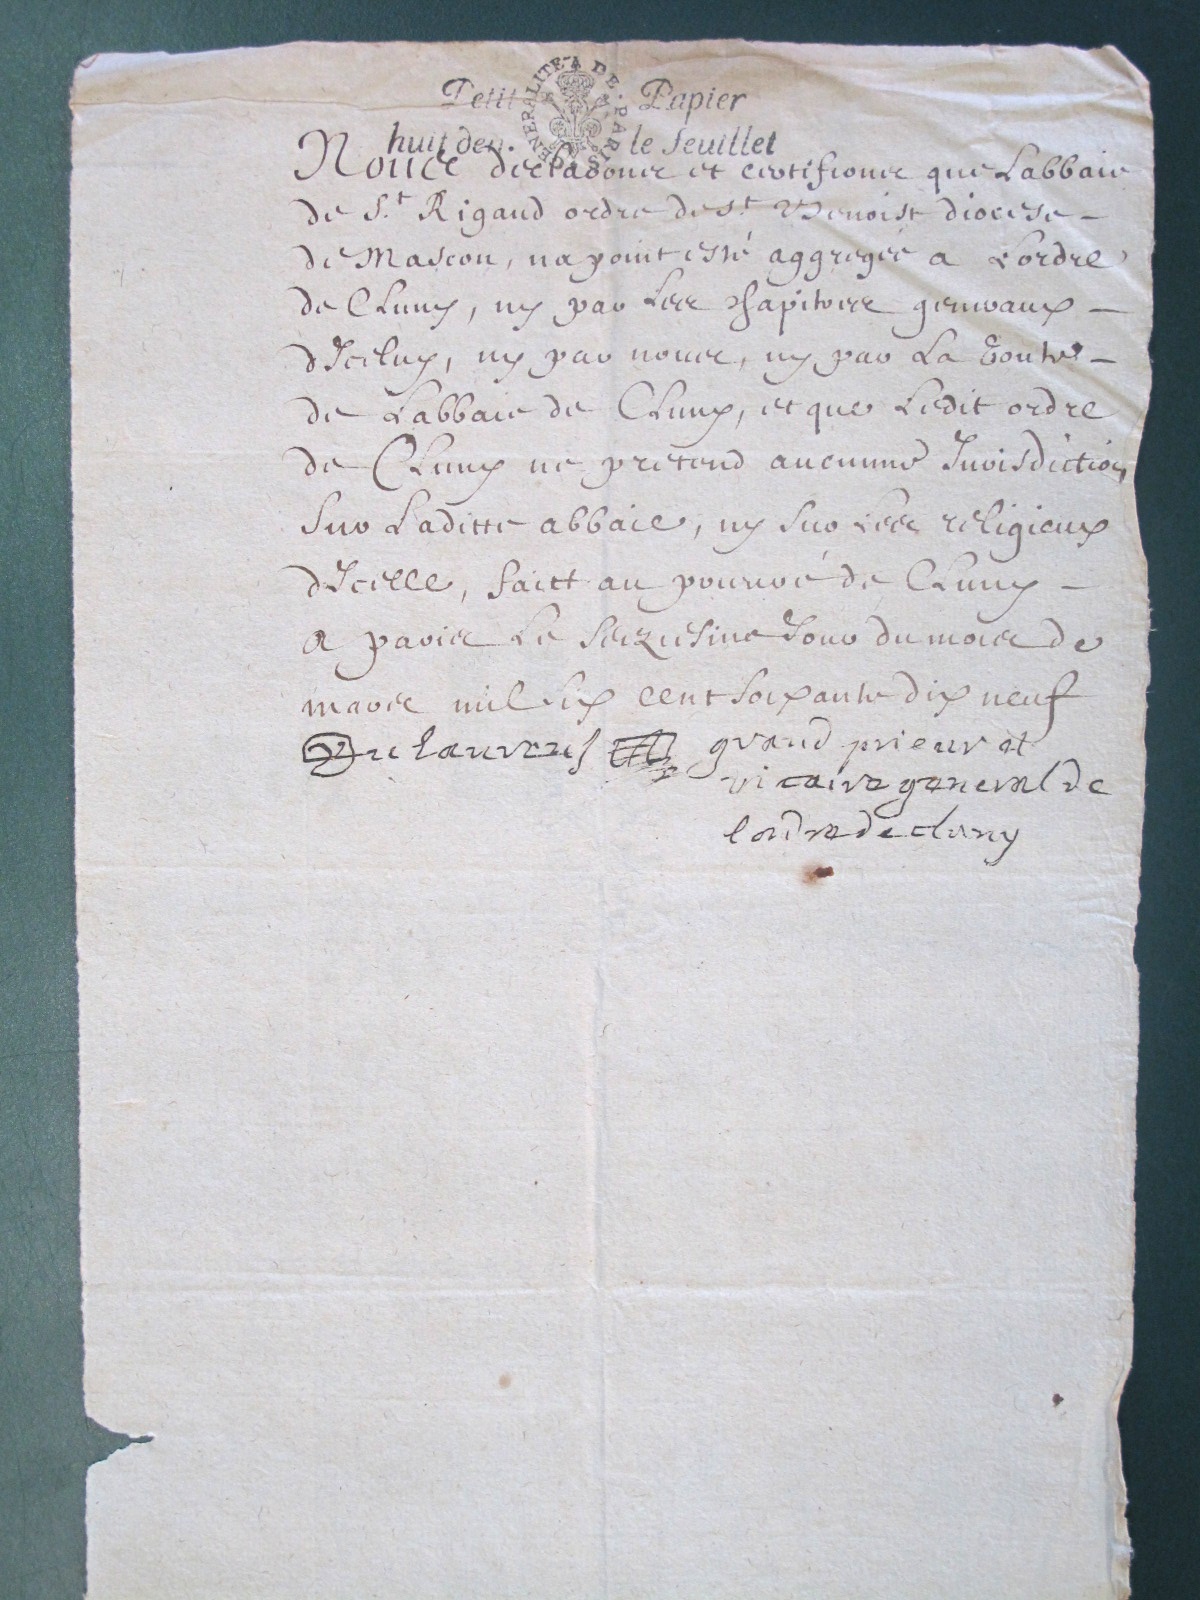 Petit Papier
GENERALITE DE PARIS
huit den. le feuillet
Nous declarons et certifions que Labbaie
de S.t Rigaud ordre de S.t Benoist diocese
de Mascon, na point esté aggregée a Lordre
de Cluny, ny par Les chapitres generaux
dIceluy, ny par nous, ny par La voute
de Labbaie de Cluny, et que Ledit ordre
de Cluny ne pretend aucunne Jurisdiction
Sur Laditte abbaie, ny Sur Les religieux
dIcelle, faict au prieuré de Cluny
a paris Le Seiziesme Jour du mois de
mars mil six cent soixante dix neuf
Dulaurens grand prieur et
vicaire general de
lordre de cluny